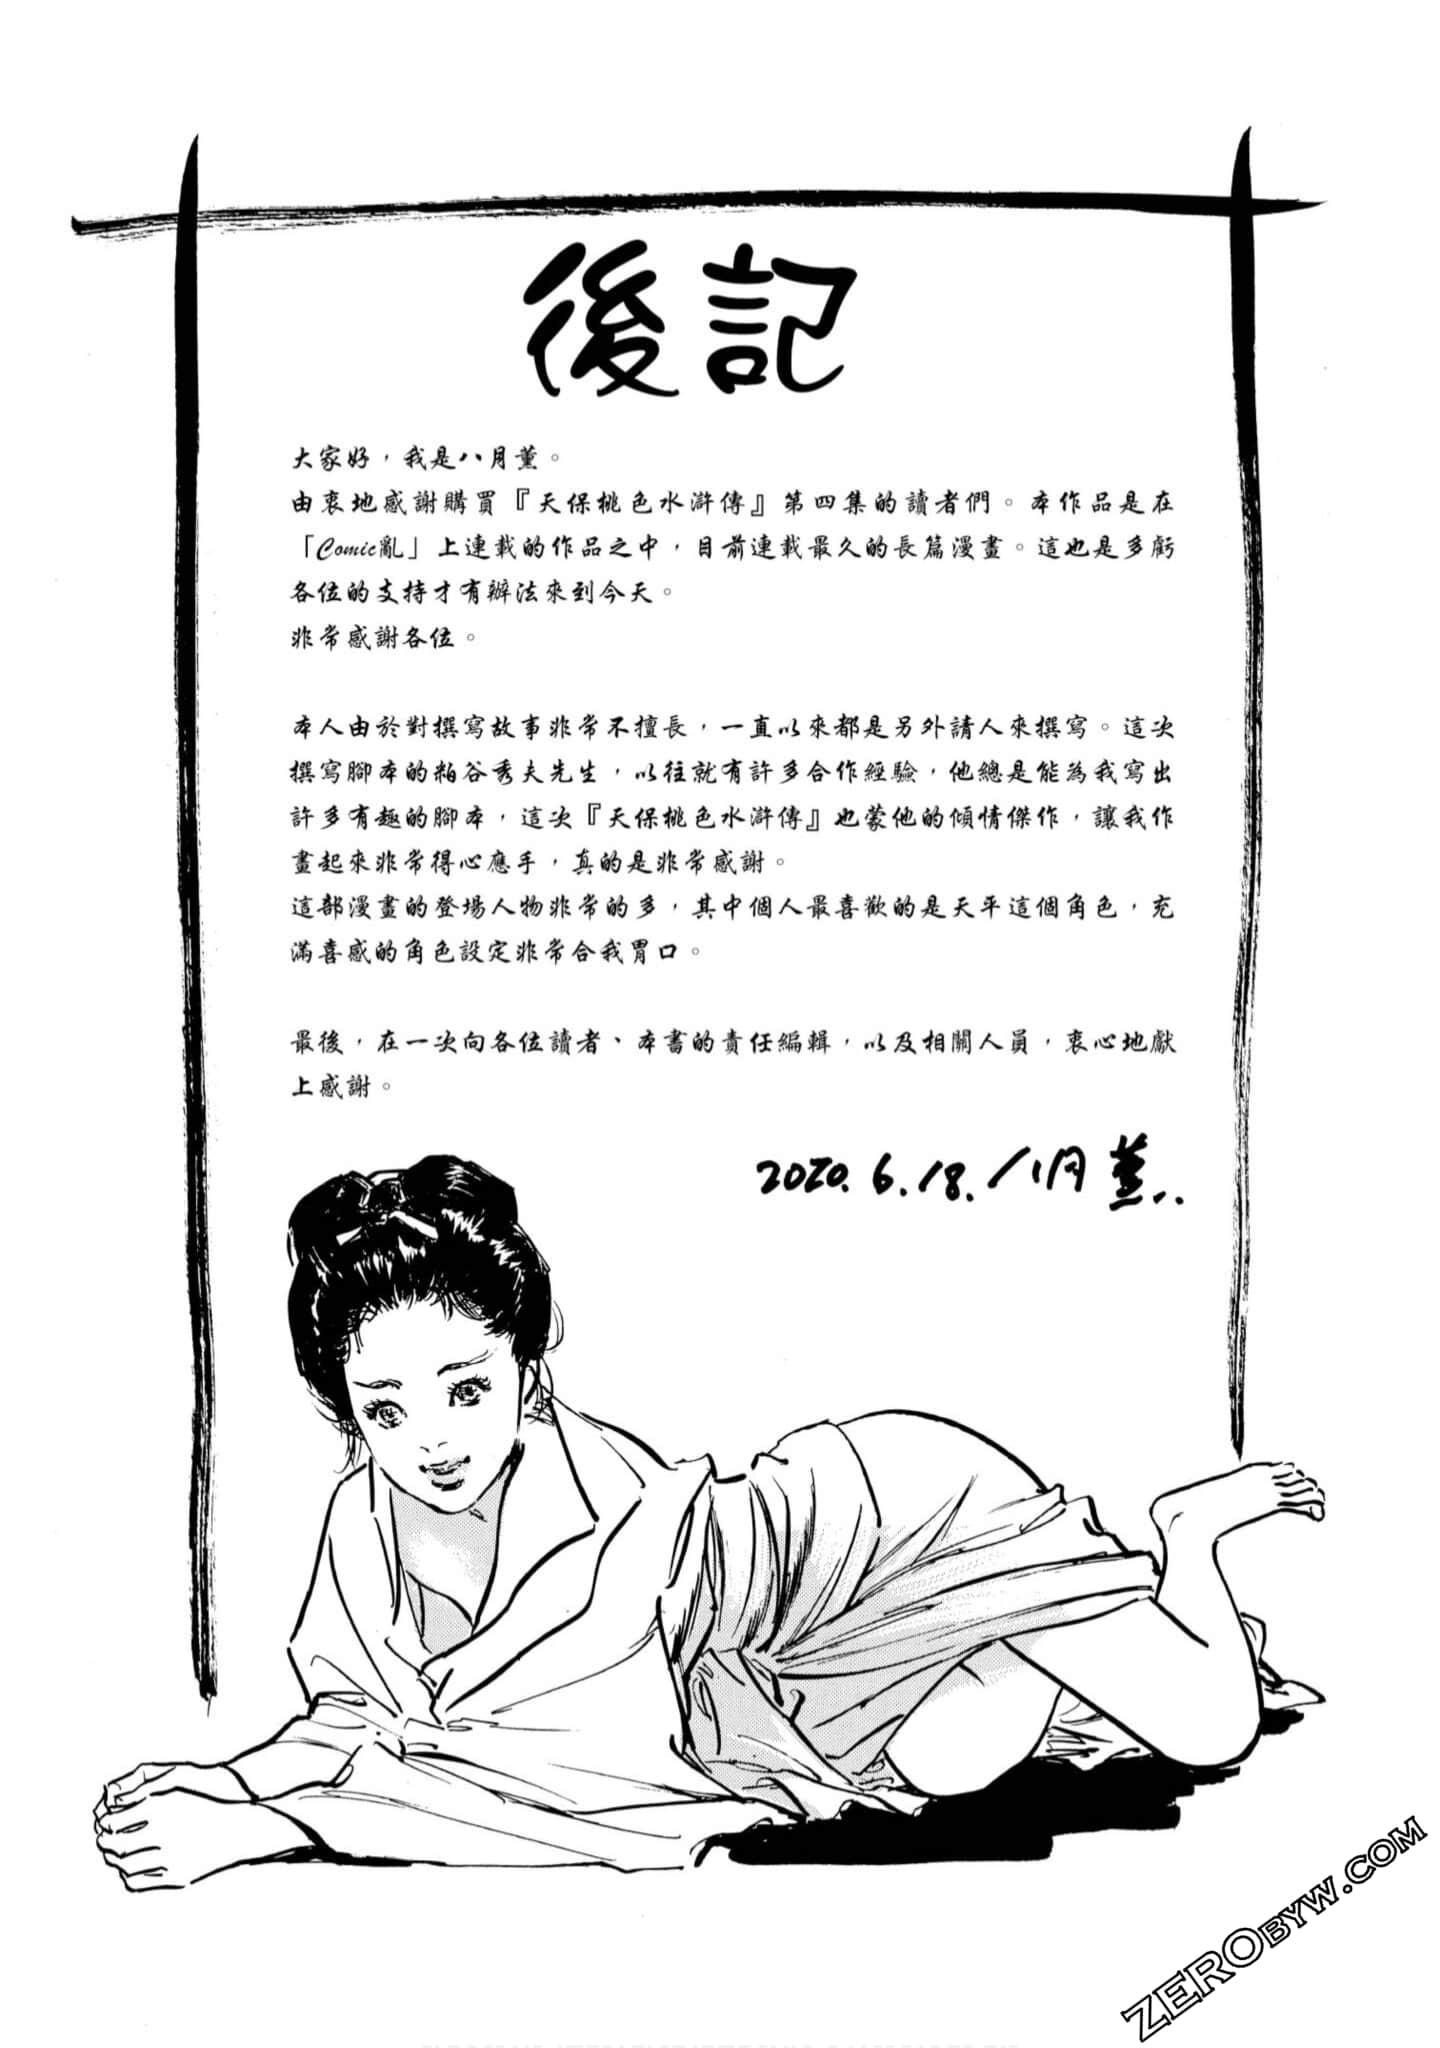 後記
大家好，我是八月薫。
由衷地感謝購買『天保桃色水滸傳』第四集的讀者們。本作品是在
「Comic亂」上連載的作品之中，目前連載最久的長篇漫畫。這也是多虧
各位的支持才有辦法來到今天。
非常感謝各位。
本人由於對撰寫故事非常不擅長，一直以來都是另外請人來撰寫。這次
撰寫腳本的粕谷秀夫先生，以往就有許多合作經驗，他總是能為我寫出
許多有趣的腳本，這次『天保桃色水滸傳』也蒙他的傾情傑作，讓我作
畫起來非常得心應手，真的是非常感謝。
這部漫畫的登場人物非常的多，其中個人最喜歡的是天平這個角色，充
滿喜感的角色設定非常合我胃口。
最後，在一次向各位讀者、本書的責任編輯，以及相關人員，衷心地獻
上感謝。
2020.6.18.八月薫..
ZEROBYW.COM